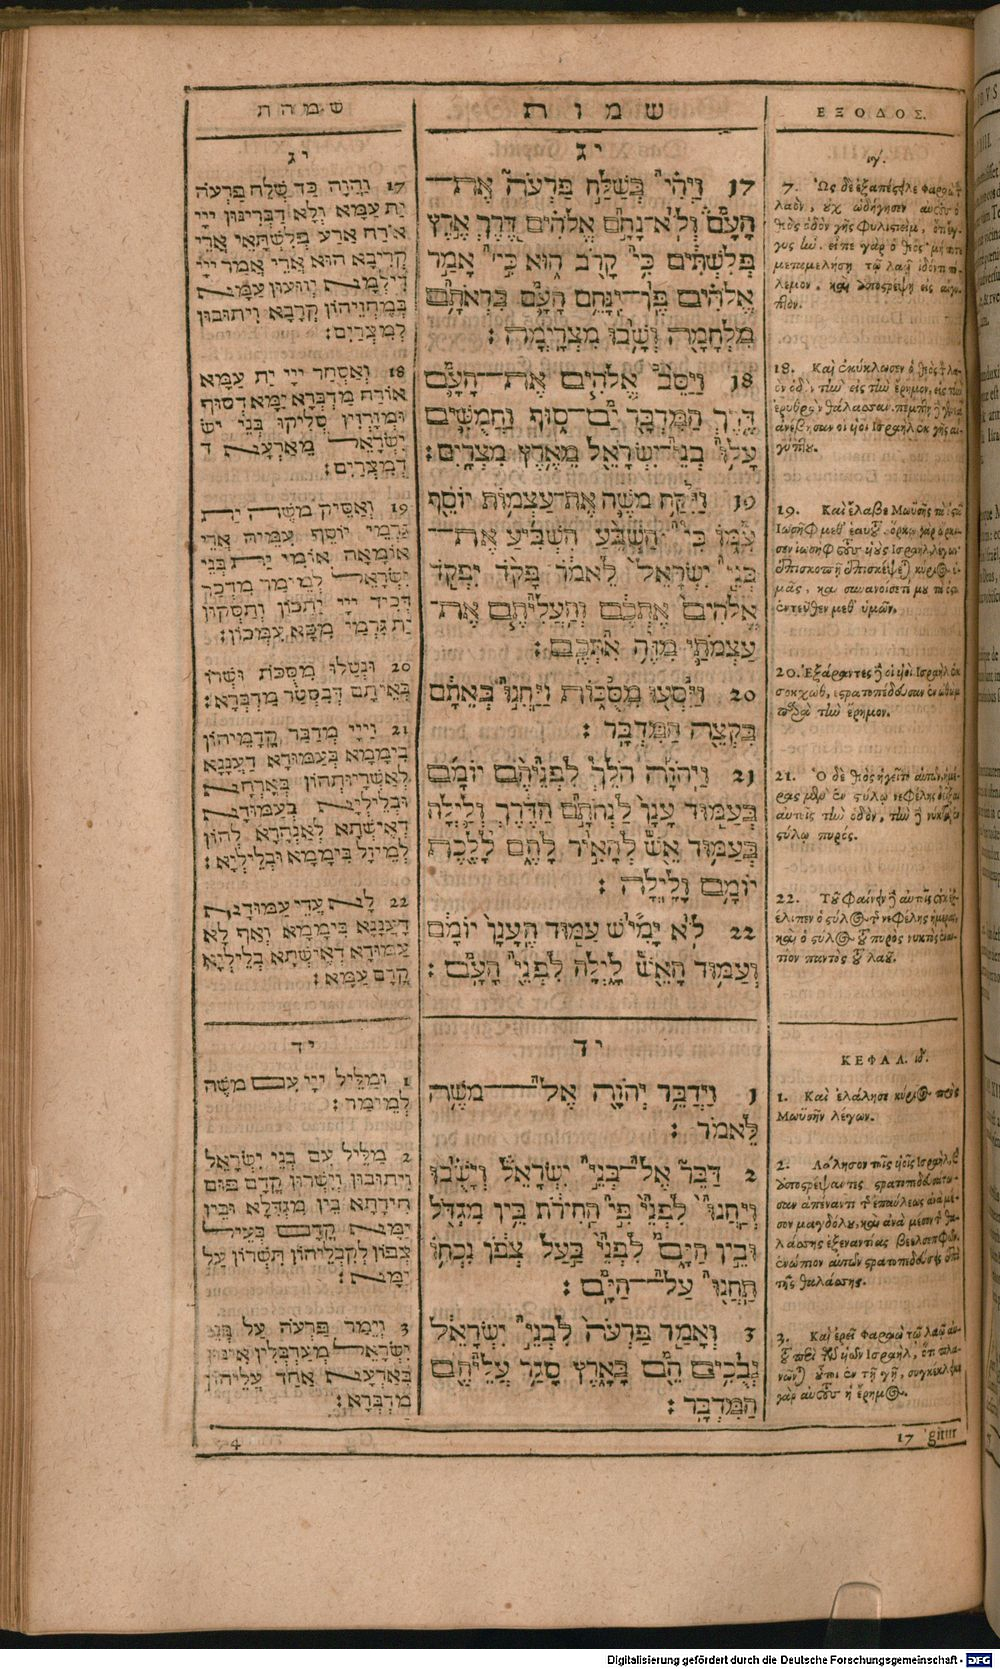 שמהת
יג
17 והוה כד שלח פרעה
ית עמא ולא דברינון ייי
אורח ארע פלשתאי ארי
קריבא הוא ארי אמר ייי
דילמא יזועון עמא
במחזיהון קרבא ויתובון
למצרים:
18 ואסחר ייי ית עמא
אורח מדברא ימא דסוף
ומזרזין סליקו בני יש
ישראל מארעא ד
דמצרים:
19 ואסיק משה ית
גרמי יוסף עמיה ארי
אומאה אומי ית בני
ישראל למימר מדכר
דכיר ייי יתכון ותסקון
ית גרמי מכא עמכון:
20 ונטלו מסכות ושרו
באיתם דבסטר מדברא:
21 וייי מדבר קדמיהון
ביממא בעמודא דעננא
לאשריותהון בארחא
ובליליא בעמודא
דאישתא לאנהרא להון
למיזל ביממא ובליליא:
22 לא עדי עמודא
דעננא ביממא ואף לא
עמודא דאישתא בליליא
קדם עמא:
יד
1 ומליל ייי עם משה
למימר:
2 מליל עם בני ישראל
ויתובון וישרון קדם פום
חירתא בין מגדלא ובין
ימא קדם בעיל
צפון לקבליהון תשרון על
ימא:
3 ויימר פרעה על בני
ישראל מערבלין אינון
בארעא אחד עליהון
מדברא:
שמות
יג
17 וַיְהִי בְּשַׁלַּח פַּרְעֹה אֶת־
הָעָם וְלֹא־נָחָם אֱלֹהִים דֶּרֶךְ אֶרֶץ
פְּלִשְׁתִּים כִּי קָרֹב הוּא כִּי אָמַר
אֱלֹהִים פֶּן־יִנָּחֵם הָעָם בִּרְאֹתָם
מִלְחָמָה וְשָׁבוּ מִצְרָיְמָה:
18 וַיַּסֵּב אֱלֹהִים אֶת־הָעָם
דֶּרֶךְ הַמִּדְבָּר יַם־סוּף וַחֲמֻשִׁים
עָלוּ בְנֵי־יִשְׂרָאֵל מֵאֶרֶץ מִצְרָיִם:
19 וַיִּקַּח מֹשֶׁה אֶת־עַצְמוֹת יוֹסֵף
עִמּוֹ כִּי הַשְׁבֵּעַ הִשְׁבִּיעַ אֶת־
בְּנֵי יִשְׂרָאֵל לֵאמֹר פָּקֹד יִפְקֹד
אֱלֹהִים אֶתְכֶם וְהַעֲלִיתֶם אֶת־
עַצְמֹתַי מִזֶּה אִתְּכֶם:
20 וַיִּסְעוּ מִסֻּכּוֹת וַיַּחֲנוּ בְאֵתָם
בִּקְצֵה הַמִּדְבָּר:
21 וַיהֹוָה הֹלֵךְ לִפְנֵיהֶם יוֹמָם
בְּעַמּוּד עָנָן לַנְחֹתָם הַדֶּרֶךְ וְלַיְלָה
בְּעַמּוּד אֵשׁ לְהָאִיר לָהֶם לָלֶכֶת
יוֹמָם וָלָיְלָה:
22 לֹא יָמִישׁ עַמּוּד הֶעָנָן יוֹמָם
וְעַמּוּד הָאֵשׁ לָיְלָה לִפְנֵי הָעָם:
יד
1 וַיְדַבֵּר יְהֹוָה אֶל־מֹשֶׁה
לֵּאמֹר:
2 דַּבֵּר אֶל־בְּנֵי יִשְׂרָאֵל וְיָשֻׁבוּ
וְיַחֲנוּ לִפְנֵי פִּי הַחִירֹת בֵּין מִגְדֹּל
וּבֵין הַיָּם לִפְנֵי בַּעַל צְפֹן נִכְחוֹ
תַחֲנוּ עַל־הַיָּם:
3 וְאָמַר פַּרְעֹה לִבְנֵי יִשְׂרָאֵל
נְבֻכִים הֵם בָּאָרֶץ סָגַר עֲלֵיהֶם
הַמִּדְבָּר:
ΕΞΟΔΟΣ.
ιγ'.
7. Ὡς δὲ ἐξαπέςειλε φαραὼ τ
λαὸν, οὐχ ὡδήγησεν αὐτοὺς ὁ
θεὸς ὁδὸν γῆς φυλιςιεὶμ, ὅτι ἐγ-
γὺς ἦν. εἶπε γὰρ ὁ θεὸς· μή ποτε
μεταμελήση τῷ λαῷ ἰδόντι πό-
λεμον, καὶ ἀποςρέψη εἰς αἴγυ-
πτον.
18. Καὶ ἐκύκλωσεν ὁ θεὸς τ λα-
ὸν ὁδὸν τὴν εἰς τὴν ἔρημον, εἰς τὴν
ἐρυθρὰν θάλασσαν. πέμπτη δὲ γενεᾷ
ἀνέβησαν οἱ υἱοὶ Ισραὴλ ἐκ γῆς αἰ-
γύπτου.
19. Καὶ ἔλαβε Μωϋσῆς τὰ ὀςᾶ
Ιωσὴφ μεθ' ἑαυτοῦ. ὅρκῳ γὰρ ὥρκι-
σεν ἰωσὴφ τοὺς υἱοὺς Ισραὴλ, λέγων·
ἐπισκοπῇ ἐπισκέψεται κύριος ὑ-
μᾶς, καὶ συνανοίσετέ μου τὰ ὀςᾶ
ἐντεῦθεν μεθ' ὑμῶν.
20. Ἐξάραντες δὲ οἱ υἱοὶ Ισραὴλ ἐκ
σοκχὼθ, ἐςρατοπέδευσαν ἐν ὀθὼμ
παρὰ τὴν ἔρημον.
21. Ὁ δὲ θεὸς ἡγεῖτο αὐτῶν, ἡμέ-
ρας μὲν ἐν ςύλῳ νεφέλης δεῖξαι
αὐτοῖς τὴν ὁδὸν, τὴν δὲ νύκτα ἐν
ςύλῳ πυρός.
22. Τοῦ φαίνειν δὲ αὐτοῖς οὐκ ἐξέ-
λιπεν ὁ ςύλος τ νεφέλης ἡμέρας,
καὶ ὁ ςύλος τοῦ πυρὸς νυκτὸς ἐναν-
τίον παντὸς τοῦ λαοῦ.
ΚΕΦΑΛ. ιδ'.
1. Καὶ ἐλάλησε κύριος πρὸς
Μωϋσῆν λέγων.
2. Λάλησον τοῖς υἱοῖς Ισραὴλ, καὶ
ἀποςρέψαντες ςρατοπεδευσάτω-
σαν ἀπέναντι τ ἐπαύλεως ἀνὰ μέ-
σον μαγδόλου, καὶ ἀνὰ μέσον τ θα-
λάσσης ἐξεναντίας βεελσεπφῶν.
ἐνώπιον αὐτῶν ςρατοπεδεύσεις ἐπὶ
τῆς θαλάσσης.
3. Καὶ ἐρεῖ φαραὼ τῷ λαῷ αὐ-
τοῦ περὶ τῶν υἱῶν Ισραὴλ, ὅτι πλα-
νῶνται οὗτοι ἐν τῇ γῇ, συγκέκλεικε
γὰρ αὐτοὺς ἡ ἔρημος.
4
17 gitur
Digitalisierung gefördert durch die Deutsche Forschungsgemeinschaft - DFG